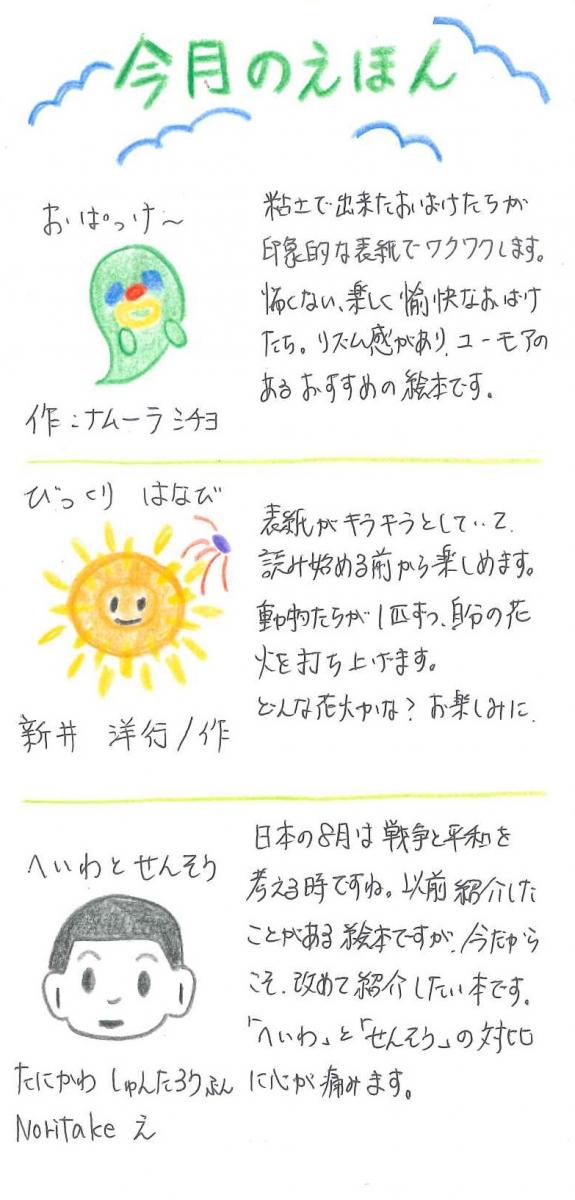 今月のえほん
おばっけ〜
作:ナムーラミチヨ
粘土で出来たおばけたちが
印象的な表紙でワクワクします。
怖くない、楽しく愉快なおばけ
たち。リズム感があり、ユーモアの
あるおすすめの絵本です。
びっくり はなび
新井 洋行/作
表紙がキラキラとしていて、
読み始める前から楽しめます。
動物たちが1匹ずつ、自分の花
火を打ち上げます。
どんな花火かな? お楽しみに.
へいわとせんそう
たにかわ しゅんたろう ぶん
Noritake え
日本の8月は戦争と平和を
考える時ですね。以前紹介した
ことがある絵本ですが、今だから
こそ、改めて紹介したい本です。
「へいわ」と「せんそう」の対比
に心が痛みます。